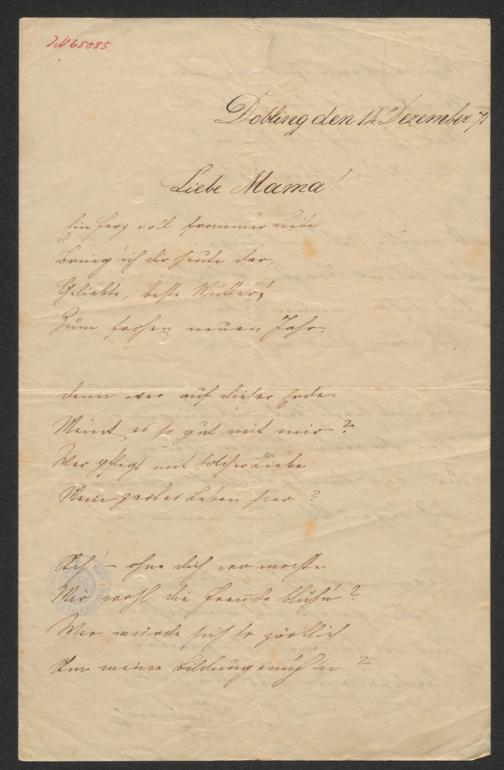 JN 65085
Döbling den 12 Dezember 7
Liebe Mama!
Ein Herz voll frommer
Bring ich dir heute dar,
Geliebte, beste Mutter!
Zum frohen neuen Jahr.
Denn wer auf dieser Erde
Meint es so gut mit mir?
Wer pflegt mit solcher Liebe
Mein zartes Leben hier?
Ach! – ohne dich, wo mochte
Mir wohl die Freude blühn?
Wer würde sich so zärtlich
Um meine Bildung mühn?